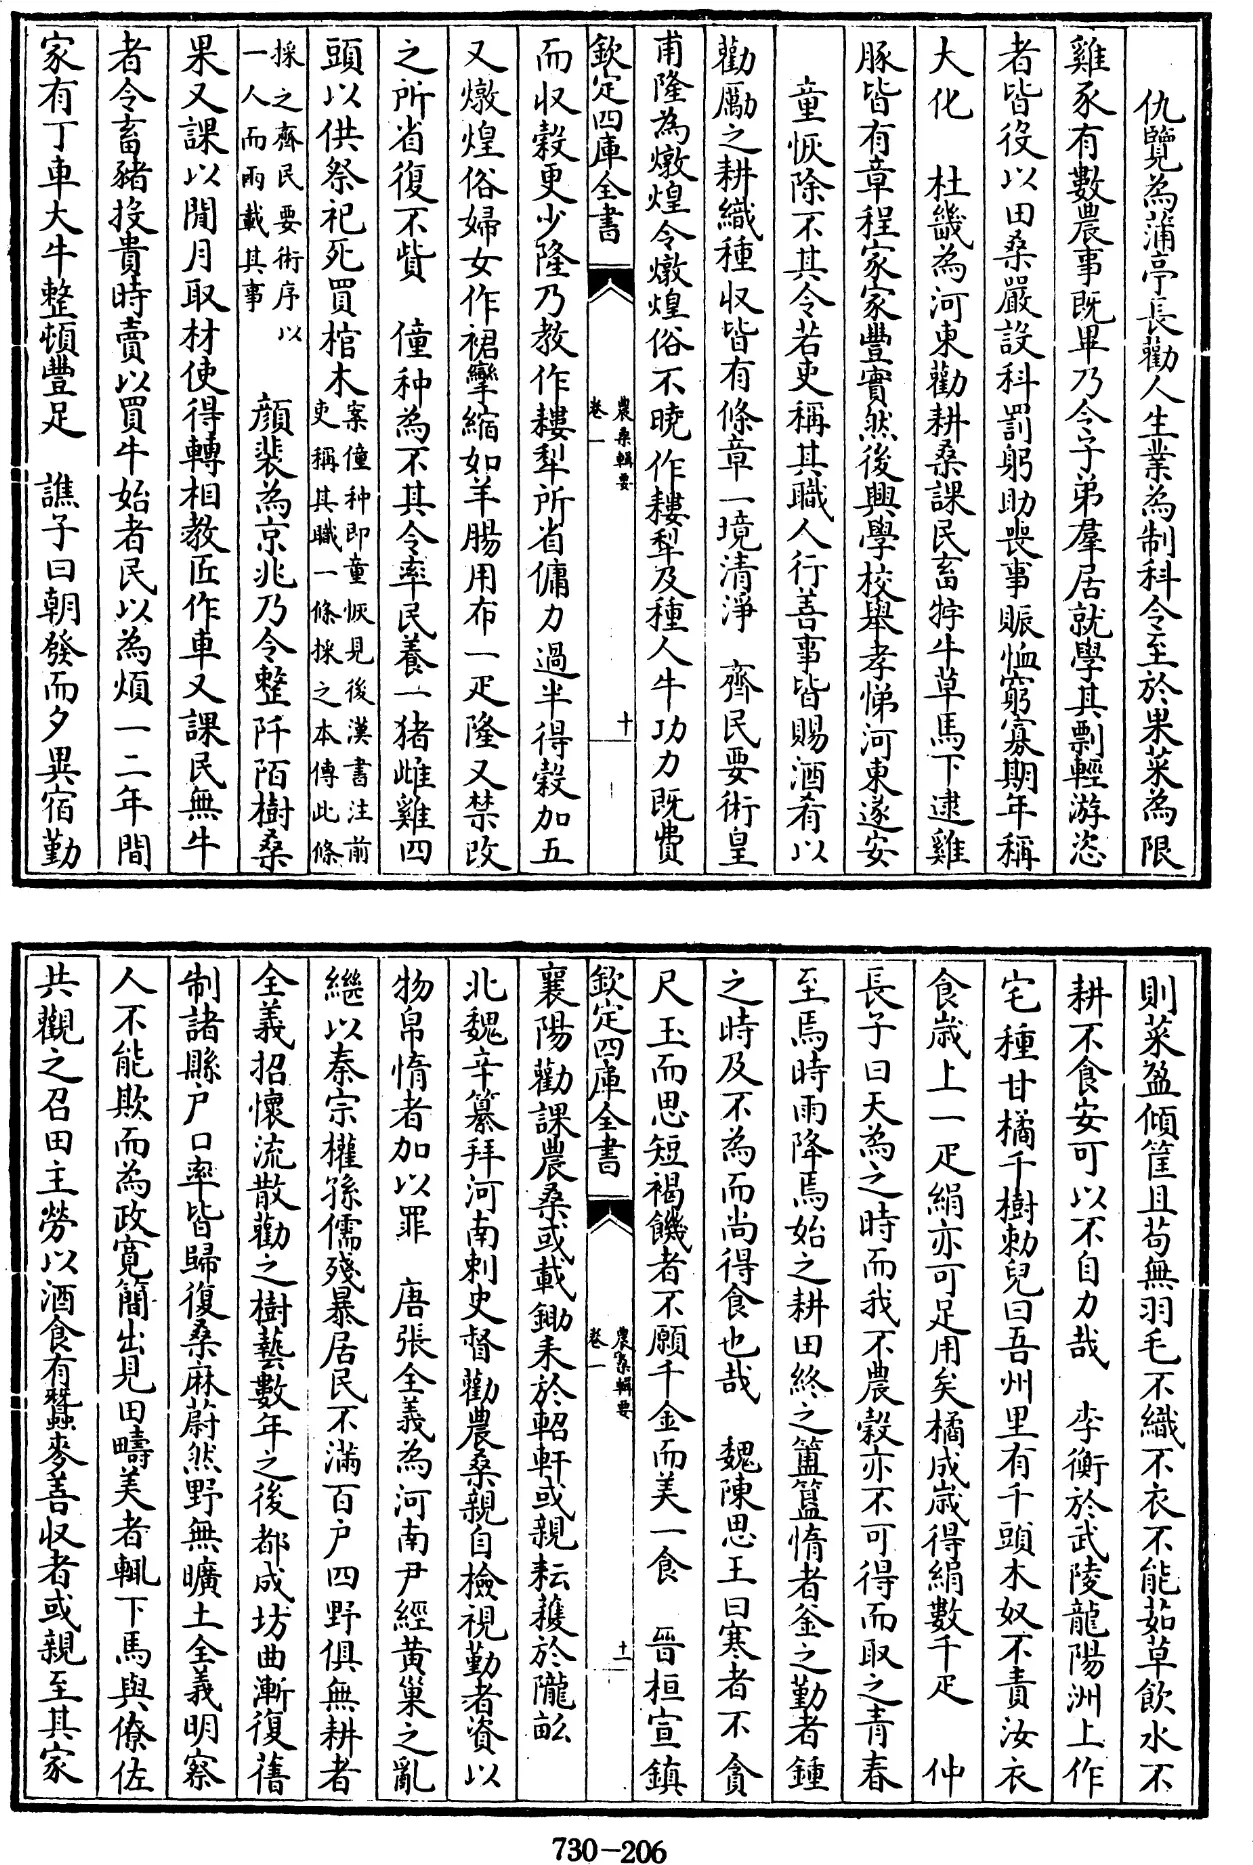 仇覽為蒲亭長勸人生業為制科令至於果菜為限
雞豕有數農事既畢乃令子弟羣居就學其剽輕游恣
者皆役以田桑嚴設科罰躬助喪事賑恤窮寡期年稱
大化　杜畿為河東勸耕桑課民畜牸牛草馬下逮雞
豚皆有章程家家豐實然後興學校舉孝悌河東遂安
童恢除不其令若吏稱其職人行善事皆賜酒肴以
勸勵之耕織種収皆有條章一境清淨　齊民要術皇
甫隆為燉煌令燉煌俗不曉作耬犂及種人牛功力既費
欽定四庫全書
農桑輯要
卷一
十
而収榖更少隆乃教作耬犂所省傭力過半得榖加五
又燉煌俗婦女作裙攣縮如羊腸用布一疋隆又禁改
之所省復不貲　僮种為不其令率民養一猪雌雞四
頭以供祭祀死買棺木
案僮种即童恢見後漢書注前
吏稱其職一條採之本傳此條
採之齊民要術序以
一人而兩載其事
顔裴為京兆乃令整阡陌樹桑
果又課以閒月取材使得轉相教匠作車又課民無牛
者令畜豬投貴時賣以買牛始者民以為煩一二年間
家有丁車大牛整頓豐足　譙子曰朝發而夕異宿勤
則菜盈傾筐且苟無羽毛不織不衣不能茹草飲水不
耕不食安可以不自力哉　李衡於武陵龍陽洲上作
宅種甘橘千樹勅兒曰吾州里有千頭木奴不責汝衣
食歲上一疋絹亦可足用矣橘成歲得絹數千疋　仲
長子曰天為之時而我不農榖亦不可得而取之青春
至焉時雨降焉始之耕田終之簠簋惰者釜之勤者鍾
之時及不為而尚得食也哉　魏陳思王曰寒者不貪
尺玉而思短褐饑者不願千金而美一食　晉桓宣鎮
欽定四庫全書
農桑輯要
卷一
十一
襄陽勸課農桑或載鋤耒於軺軒或親耘穫於隴畝
北魏辛纂拜河南刺史督勸農桑親自檢視勤者資以
物帛惰者加以罪　唐張全義為河南尹經黃巢之亂
繼以秦宗權孫儒殘暴居民不滿百户四野俱無耕者
全義招懷流散勸之樹藝數年之後都成坊曲漸復舊
制諸縣户口率皆歸復桑麻蔚然野無曠土全義明察
人不能欺而為政寛簡出見田疇美者輒下馬與僚佐
共觀之召田主勞以酒食有蠶麥善収者或親至其家
730-206